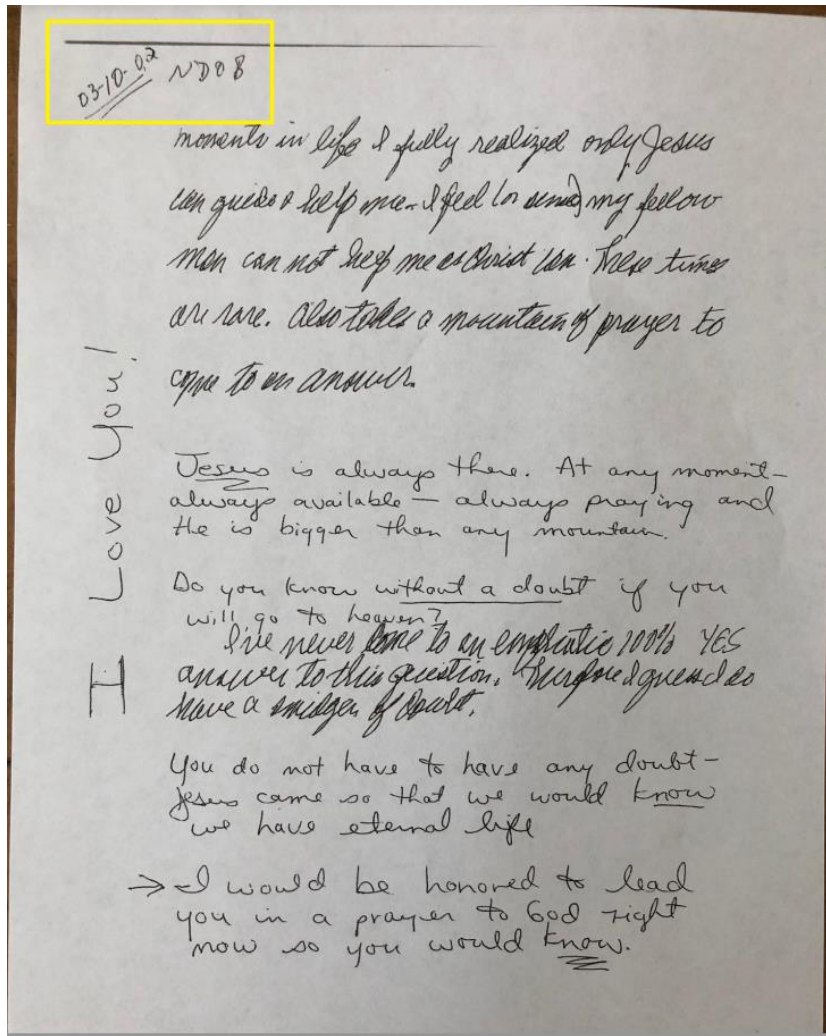 03-10-02 ND08
moments in life I fully realized only Jesus
can guide & help me - I feel (or sense) my fellow
man can not help me as Christ can. These times
are rare. Also takes a mountain of prayer to
come to an answer.
Jesus is always there. At any moment -
always available - always praying and
He is bigger than any mountain.
Do you know without a doubt if you
will go to heaven?
I've never come to an emphatic 100% YES
answer to this question, therefore I guess I do
have a smidgen of doubt.
You do not have to have any doubt -
Jesus came so that we would know
we have eternal life
→ I would be honored to lead
you in a prayer to God right
now so you would know.
I Love You!